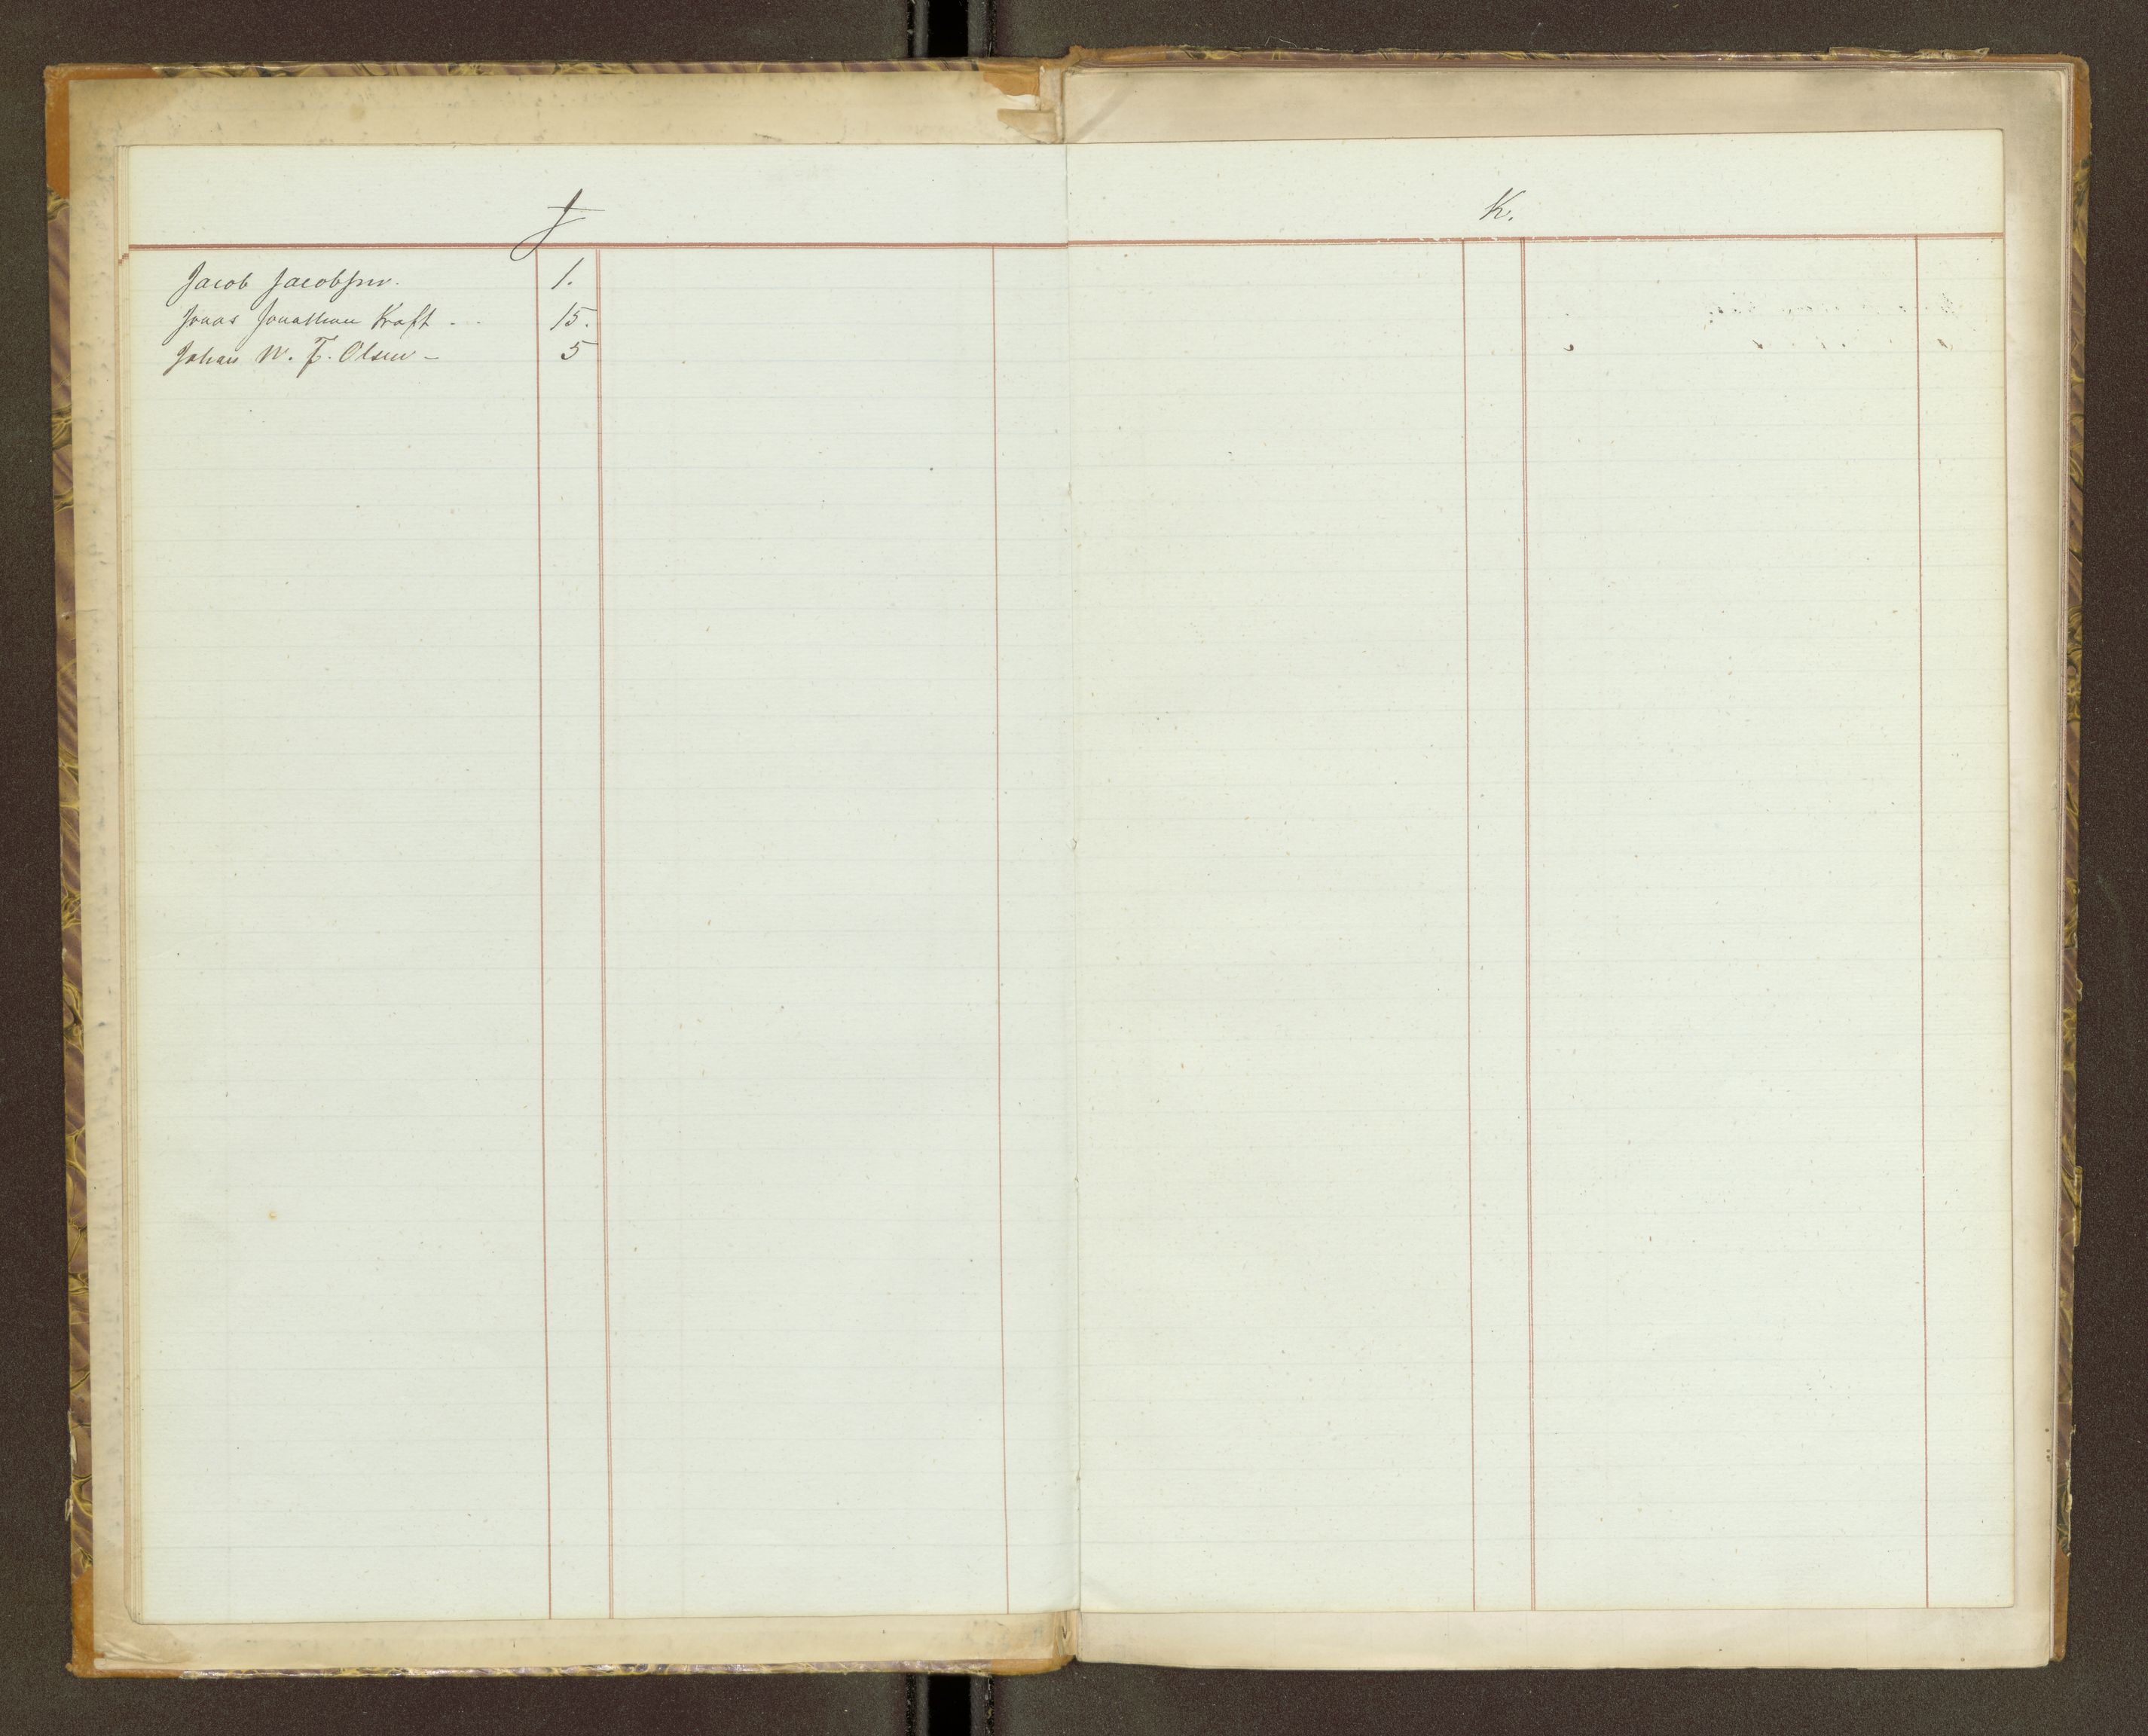 J
Jacob Jacobsen. 1.
Jonas Jonathan Kraft - .. 15.
Johan W. F. Olsen - 5
K.